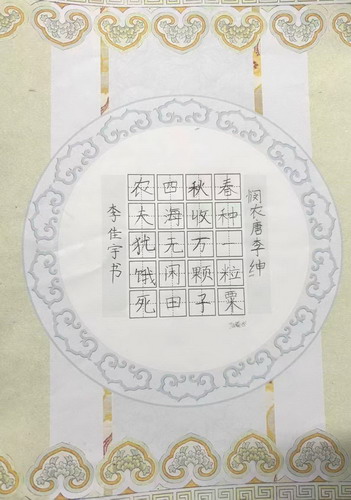 悯农唐李绅
春种一粒粟
秋收万颗子
四海无闲田
农夫犹饿死
李佳宇书